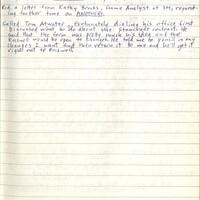 Rcd. a letter from Kathy Brooks, Game Analyst at SPI, request-
ing further time on
Called Tom Atwater, fortunately dialing his office first.
Discussed what to do about the Stanchart contract. He
said that the form was pretty much his idea and that
would be open to changes. He told me to pencil in any
changes I want and then return it to me and he'll get it
right out to